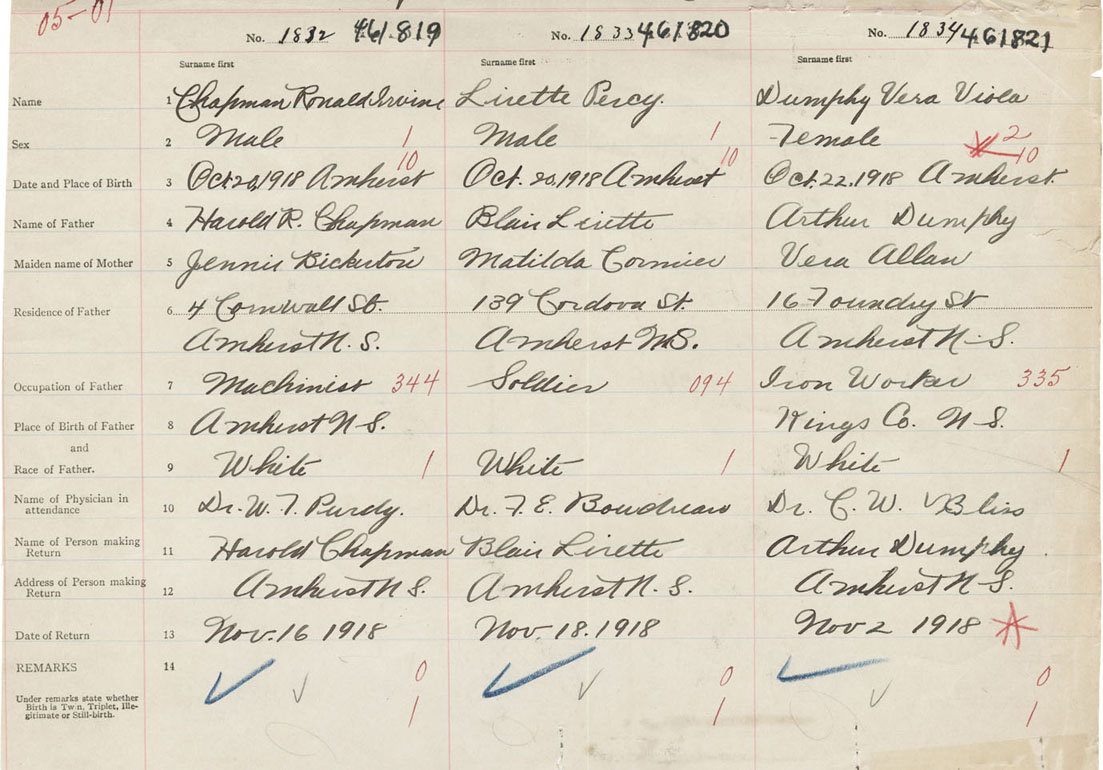 05-01
No. 1832 461.819 No. 1833 461820 No. 1834 461821
Surname first Surname first Surname first
Name 1 Chapman Ronald Irvine Lirette Percy. Dumphy Vera Viola
Sex 2 Male 1 Male 1 Female 2
10 10 10
Date and Place of Birth 3 Oct.20,1918 Amherst Oct. 20,1918 Amherst Oct.22,1918 Amherst.
Name of Father 4 Harold R. Chapman Blair Lirette Arthur Dumphy
Maiden name of Mother 5 Jennie Bickerton Matilda Cormier Vera Allan
Residence of Father 6 4 Cornwall St. 139 Cordova St. 16 Foundry St
Amherst N. S. Amherst N.S. Amherst N-S.
Occupation of Father 7 Machinist 344 Soldier 094 Iron Worker 335
Place of Birth of Father 8 Amherst N-S. Kings Co. N-S.
and
Race of Father. 9 White 1 White 1 White 1
Name of Physician in attendance 10 Dr. W. T. Purdy. Dr. F. E. Boudreau Dr. C. W. Bliss
Name of Person making Return 11 Harold Chapman Blair Lirette Arthur Dumphy.
Address of Person making Return 12 Amherst N S. Amherst N. S. Amherst N-S.
Date of Return 13 Nov. 16 1918 Nov. 18. 1918 Nov 2 1918
REMARKS 14 0 0 0
Under remarks state whether
Birth is Twin, Triplet, Ille-
gitimate or Still-birth. 1 1 1